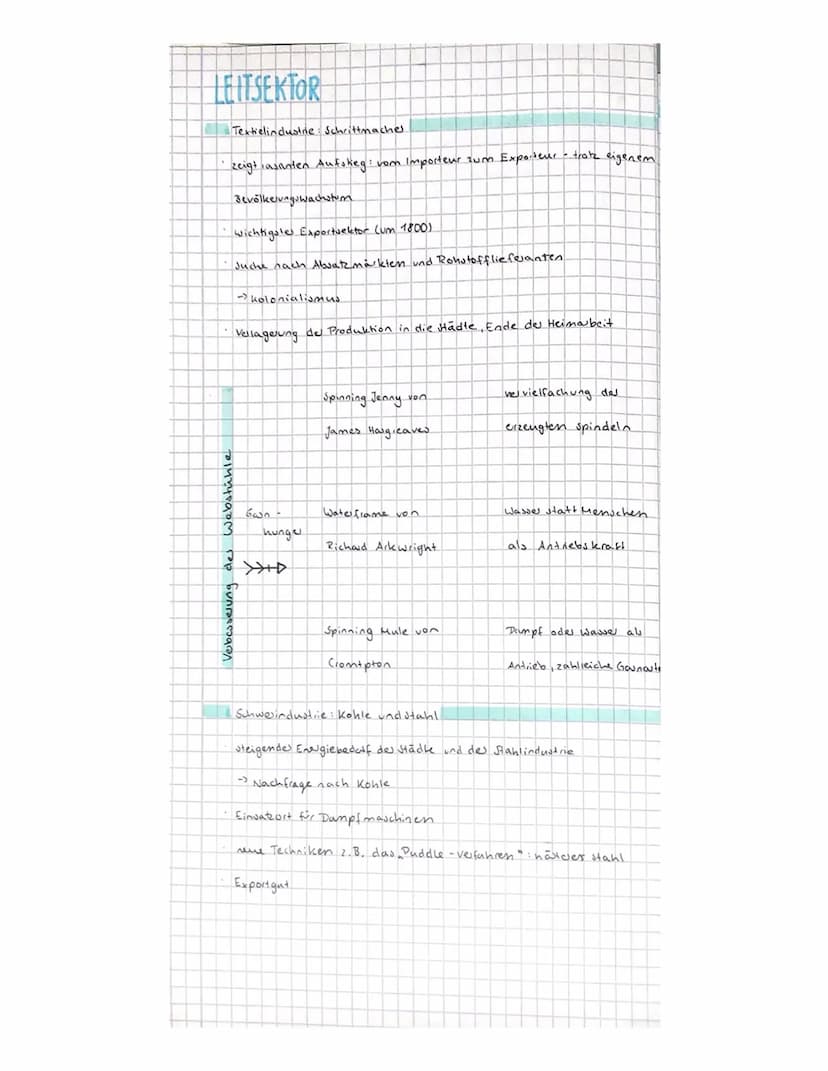 LEITSEKTOR
Textielindustrie: Schrittmacher
· zeigt rasanten Aufstieg: vom Importeur zum Exporteur - trotz eigenem
Bevölkerungswachstum
· wichtigster Exportsektor (um 1800)
· Suche nach Absatzmärkten und Rohstofflieferanten
-> Kolonialismus
· Verlagerung der Produktion in die Städte, Ende der Heimarbeit
Verbesserung des Webstuhls
Garn-
hunger
Spinning Jenny von
James Hargreaves
vervielfachung der
erzeugten Spindeln
Waterframe von
Richard Arkwright
Wasser statt Menschen
als Antriebskraft
Spinning Mule von
Cromtpton
Dampf oder Wasser als
Antrieb, zahlreiche Garnarte
Schwerindustrie: Kohle und Stahl
steigender Energiebedarf der Städte und der Stahlindustrie
-> Nachfrage nach Kohle
· Einsatzort für Dampfmaschinen
· neue Techniken z.B. das „Puddle-verfahren": härterer Stahl
· Exportgut